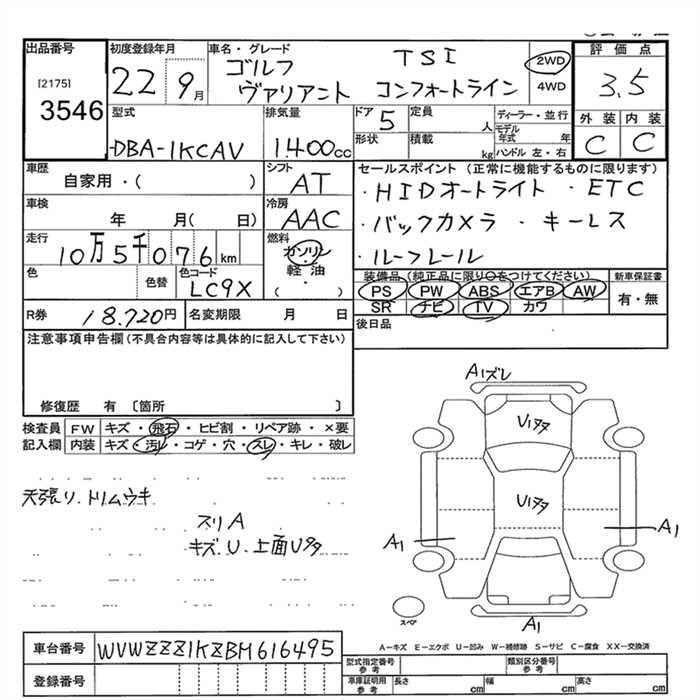 出品番号 初度登録年月 車名・グレード 評価点
[2175] 22 9月 ゴルフ TSI 2WD 3.5
3546 ヴァリアント コンフォートライン 4WD
型式 排気量 ドア 5 定員 人 ディーラー・並行 外装 内装
DBA-1KCAV 1400cc 形状 積載 kg モデル年式 年 C C
ハンドル 左・右
車歴 シフト セールスポイント (正常に機能するものに限ります)
自家用・( ) AT ・HIDオートライト ・ETC
車検 冷房 ・バックカメラ ・キーレス
年 月( 日) AAC ・ルーフレール
走行 燃料
10万5千076km ガソリン
色 色替 色コード 軽油 装備品(純正品に限り○をつけてください) 新車保証書
LC9X ・ PS PW ABS エアB AW 有・無
( ) SR ナビ TV カワ
R券 18.720円 名変期限 月 日 後日品
注意事項申告欄(不具合内容等は具体的に記入して下さい)
修復歴 有 〔箇所 〕
検査員 FW キズ・飛石・ヒビ割・リペア跡・×要
記入欄 内装 キズ・汚レ・コゲ・穴・スレ・キレ・破レ
天張リ、トリムウキ
スリA
キズ、U、上面Uタタ
A1ズレ
Uタタ
Uタタ
A1 A1
スペア
A1
A-キズ E-エクボ U-凹み W-補修跡 S-サビ C-腐食 XX-交換済
車台番号 WVWZZZ1KZBM616495
型式指定番号 参考 類別区分番号 参考
登録番号 車庫証明用 参考 長さ cm 幅 cm 高さ cm